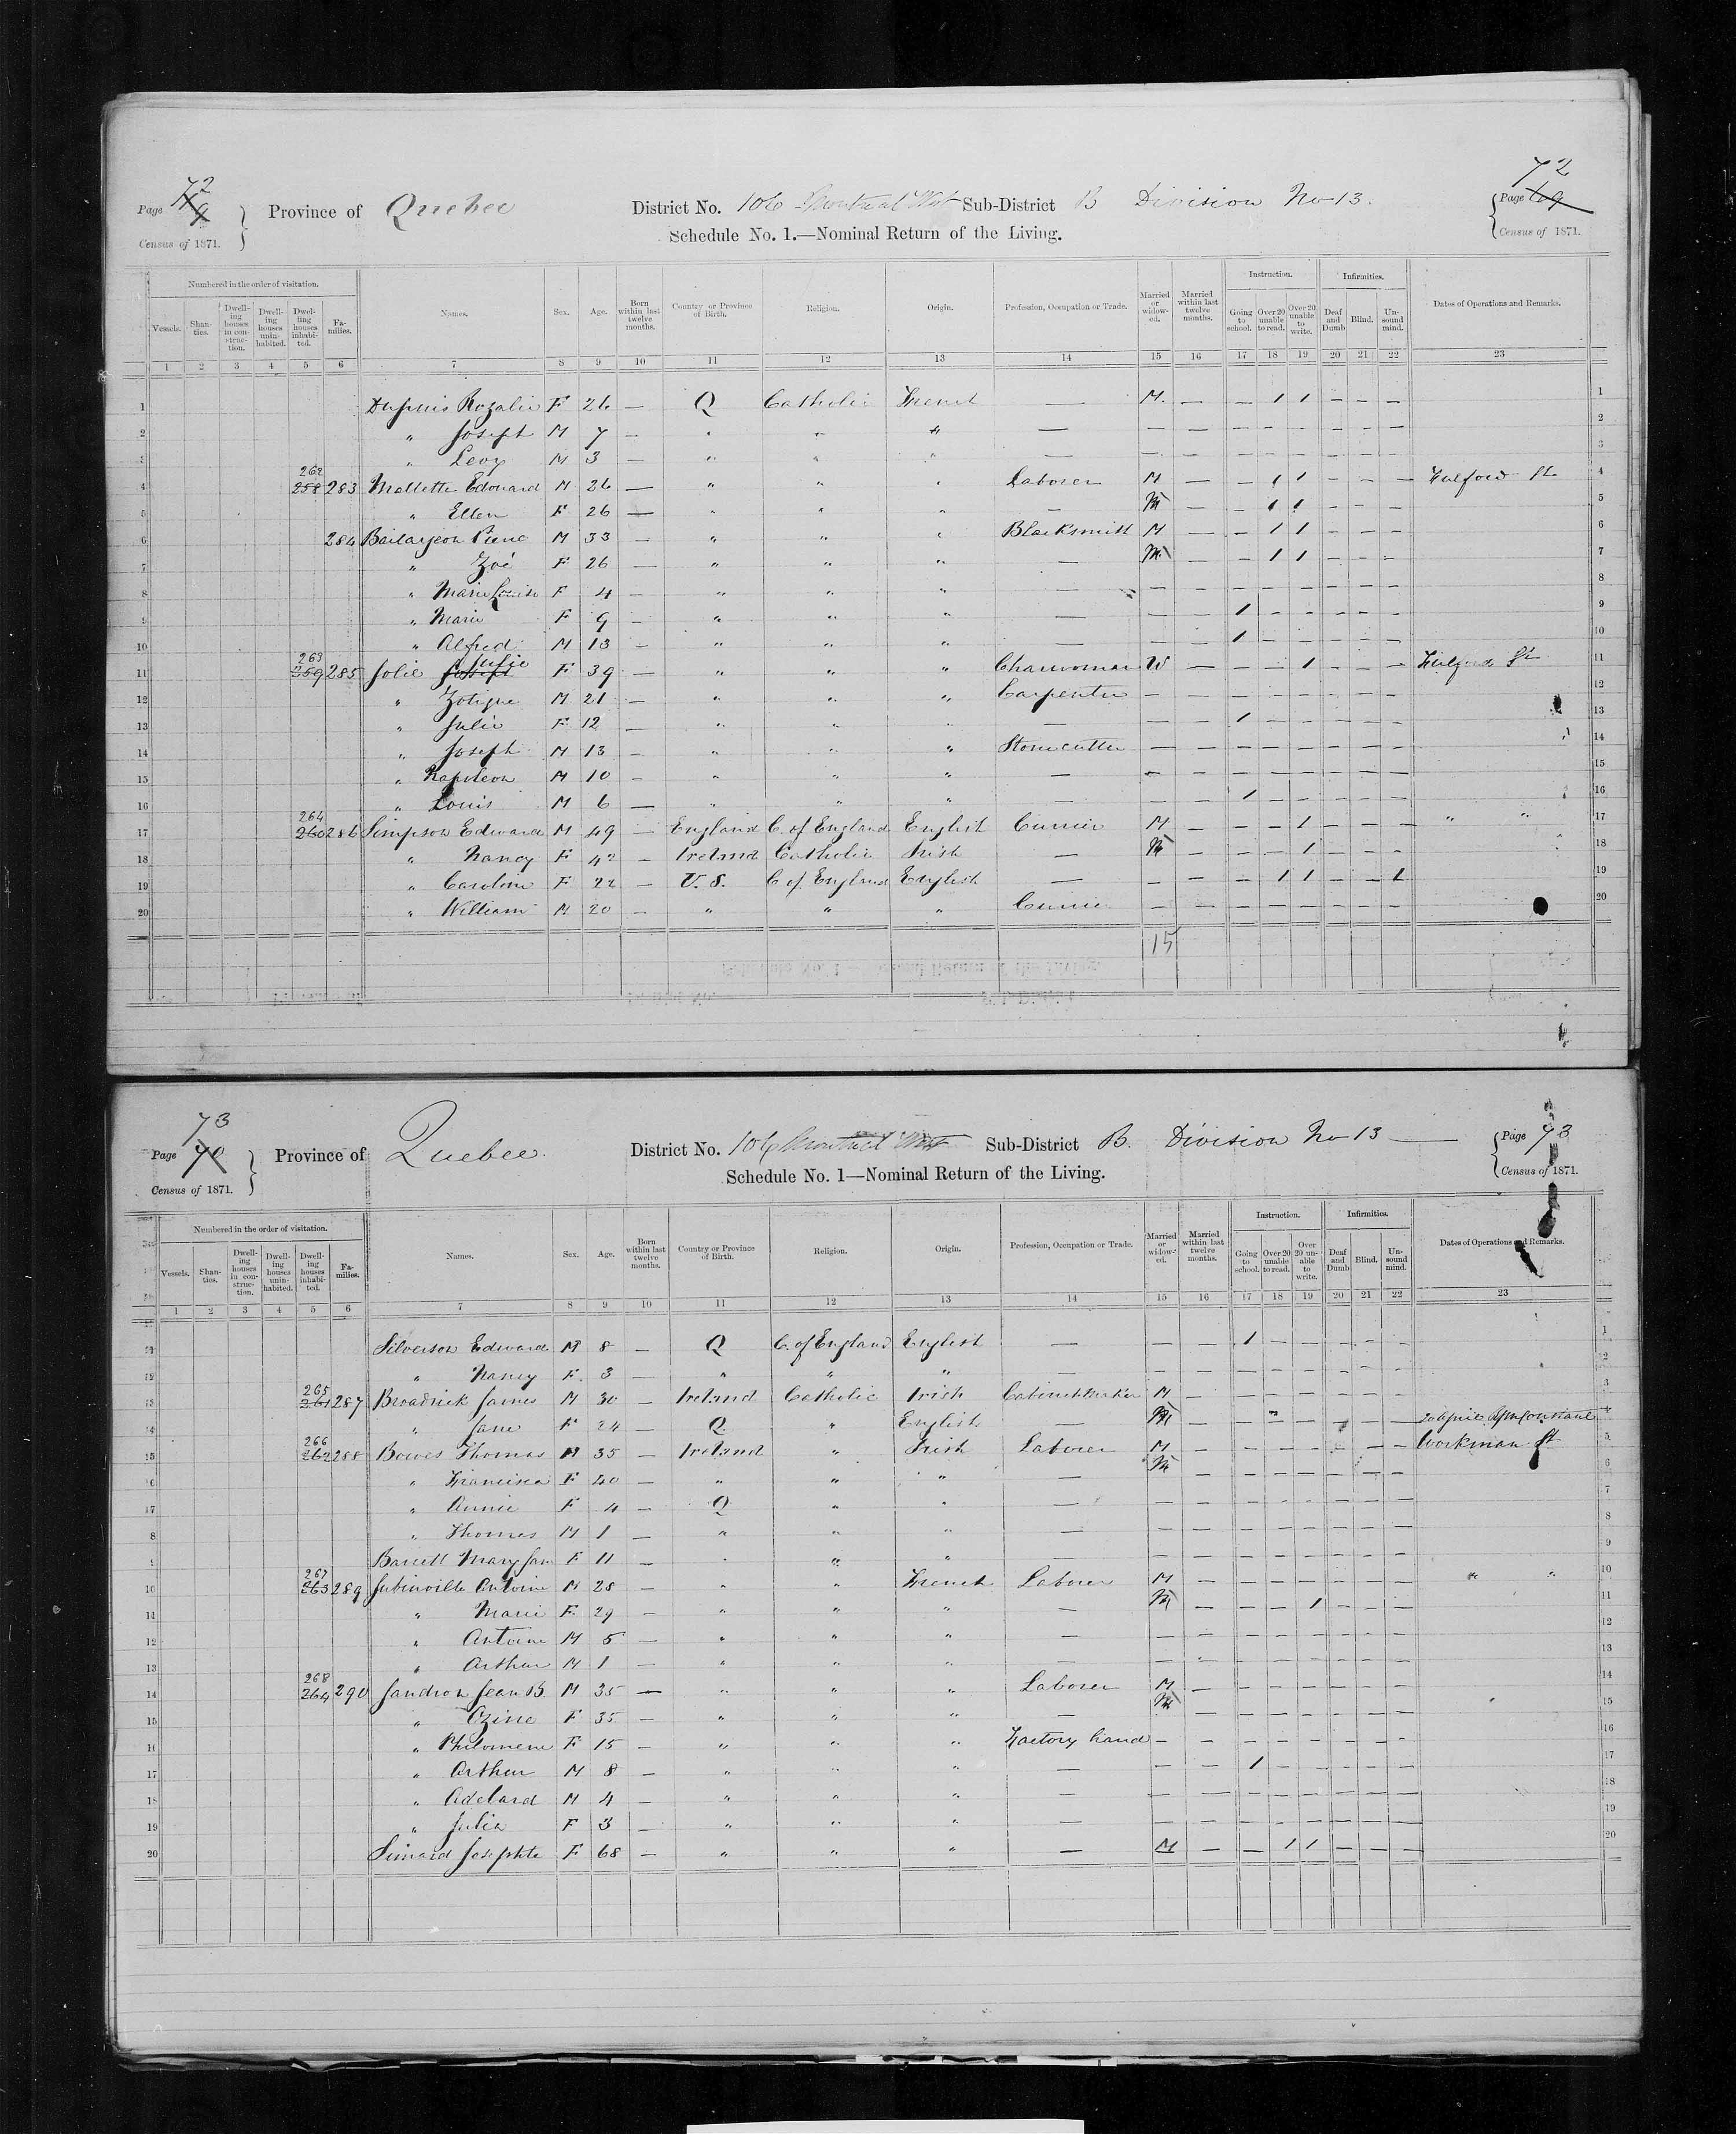 72
Page
Census of 1871.
Province of Quebec District No. 106 Montreal West Sub-District B Division No 13.
Schedule No. 1.—Nominal Return of the Living.
72
Page 69
Census of 1871.
Numbered in the order of visitation. Instruction. Infirmities.
Vessels. Shanties. Dwelling houses in construction. Dwelling houses uninhabited. Dwelling houses inhabited. Families. Names. Sex. Age. Born within last twelve months. Country or Province of Birth. Religion. Origin. Profession, Occupation or Trade. Married or widowed. Married within last twelve months. Going to school. Over 20 unable to read. Over 20 unable to write. Deaf and Dumb Blind. Unsound mind. Dates of Operations and Remarks.
1 2 3 4 5 6 7 8 9 10 11 12 13 14 15 16 17 18 19 20 21 22 23
1 Dupuis Rozalie F 26 — Q Catholic French — M. — — 1 1 — — — 1
2 " Joseph M 7 — " " " — — — — — — — — — 2
3 " Levy M 3 — " " " — — — — — — — — — 3
262
4 258 283 Mallette Edouard M 26 — " " " Laborer M — — 1 1 — — — Fulford St 4
5 " Ellen F 26 — " " " — M — — 1 1 — — — 5
6 284 Bailarjeon Pierre M 33 — " " " Blacksmith M — — 1 1 — — — 6
7 " Zoé F 26 — " " " — M — — 1 1 — — — 7
8 " Marie Louise F 4 — " " " — — — — — — — — — 8
9 " Marie F 9 — " " " — — — 1 — — — — — 9
10 " Alfred M 13 — " " " — — — 1 — — — — — 10
263 Julie
11 259 285 Jolie Joseph F 39 — " " " Charwoman W — — — 1 — — — Fulford St 11
12 " Zotique M 21 — " " " Carpenter — — — — — — — — 12
13 " Julie F 12 — " " " — — — 1 — — — — — 13
14 " Joseph M 13 — " " " Stonecutter — — — — — — — — 14
15 " Napoleon M 10 — " " " — — — — — — — — — 15
16 " Louis M 6 — " " " — — — 1 — — — — — 16
264
17 260 286 Simpson Edward M 49 — England C. of England English Currier M — — — 1 — — — " " 17
18 " Nancy F 42 — Ireland Catholic Irish — M — — — 1 — — — 18
19 " Caroline F 22 — U. S. C of England English — — — — 1 1 — — 1 19
20 " William M 20 — " " " Currier — — — — — — — — 20
15
73
Page 70
Census of 1871.
Province of Quebec. District No. 106 Montreal West Sub-District B. Division No 13 —
Schedule No. 1—Nominal Return of the Living.
Page 73
Census of 1871.
Numbered in the order of visitation. Instruction. Infirmities.
Vessels. Shanties. Dwelling houses in construction. Dwelling houses uninhabited. Dwelling houses inhabited. Families. Names. Sex. Age. Born within last twelve months. Country or Province of Birth. Religion. Origin. Profession, Occupation or Trade. Married or widowed. Married within last twelve months. Going to school. Over 20 unable to read. Over 20 unable to write. Deaf and Dumb Blind. Unsound mind. Dates of Operations and Remarks.
1 2 3 4 5 6 7 8 9 10 11 12 13 14 15 16 17 18 19 20 21 22 23
Silverson Edward M 8 — Q C. of England English — — — 1 — — — — — 1
" Nancy F. 3 — " " " — — — — — — — — — 2
265
261 287 Broadrick James M 30 — Ireland Catholic Irish Cabinet Maker M — — — — — — — 3
" Jane F 24 — Q " English — M — — — — — — 20 April 4
266
262 288 Bowes Thomas M 35 — Ireland " Irish Laborer M — — — — — — — Workman St 5
6 " Francisca F 40 — " " " — M — — — — — — — 6
" Annie F 4 — Q " " — — — — — — — — — 7
8 " Thomas M 1 — " " " — — — — — — — — — 8
Barrett Mary Jan F 11 — " " " — — — — — — — — — 9
267
10 263 289 Jubinville Antoine M 28 — " " French Laborer M — — — — — — — " " 10
" Marie F. 29 — " " " — M — — — 1 — — — 11
12 " Antoine M 5 — " " " — — — — — — — — — 12
13 " Arthur M 1 — " " " — — — — — — — — — 13
268
14 264 290 Jandron Jean B. M 35 — " " " Laborer M — — — — — — — 14
15 " Ozine F 35 — " " " — M — — — — — — — 15
" Philomene F 15 — " " " Factory hand — — — — — — — — 16
17 " Arthur M 8 — " " " — — — 1 — — — — — 17
18 " Adelard M 4 — " " " — — — — — — — — — 18
19 " Julia F 3 — " " " — — — — — — — — — 19
20 Simard Josephte F 68 — " " " — M — — 1 1 — — — 20